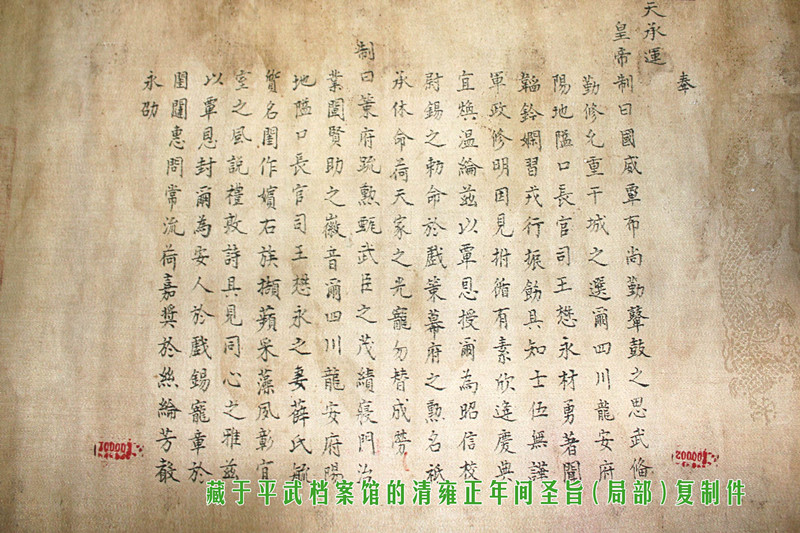 奉
天承運
皇帝制曰國威覃布尚勤鼙鼓之思武備
勤修允重干城之選爾四川龍安府
陽地隘口長官司王懋永材勇著聞
韜鈐嫻習戎行振飭具知士伍無譁
軍政修明因見拊循有素欣逢慶典
宜煥温綸茲以覃恩授爾為昭信校
尉錫之勅命於戲策幕府之勲名祇
承休命荷天家之光寵勿替成勞
制曰策府疏勲甄武臣之茂績寢門治
業閫賢助之徽音爾四川龍安府陽
地隘口長官司王懋永之妻薛氏毓
質名閨作嬪右族擷蘋采藻夙彰宜
室之風說禮敦詩具見同心之雅茲
以覃恩封爾為安人於戲錫寵章於
閨闥惠問常流荷嘉獎於絲綸芳聲
永劭
藏于平武档案馆的清雍正年间圣旨(局部)复制件